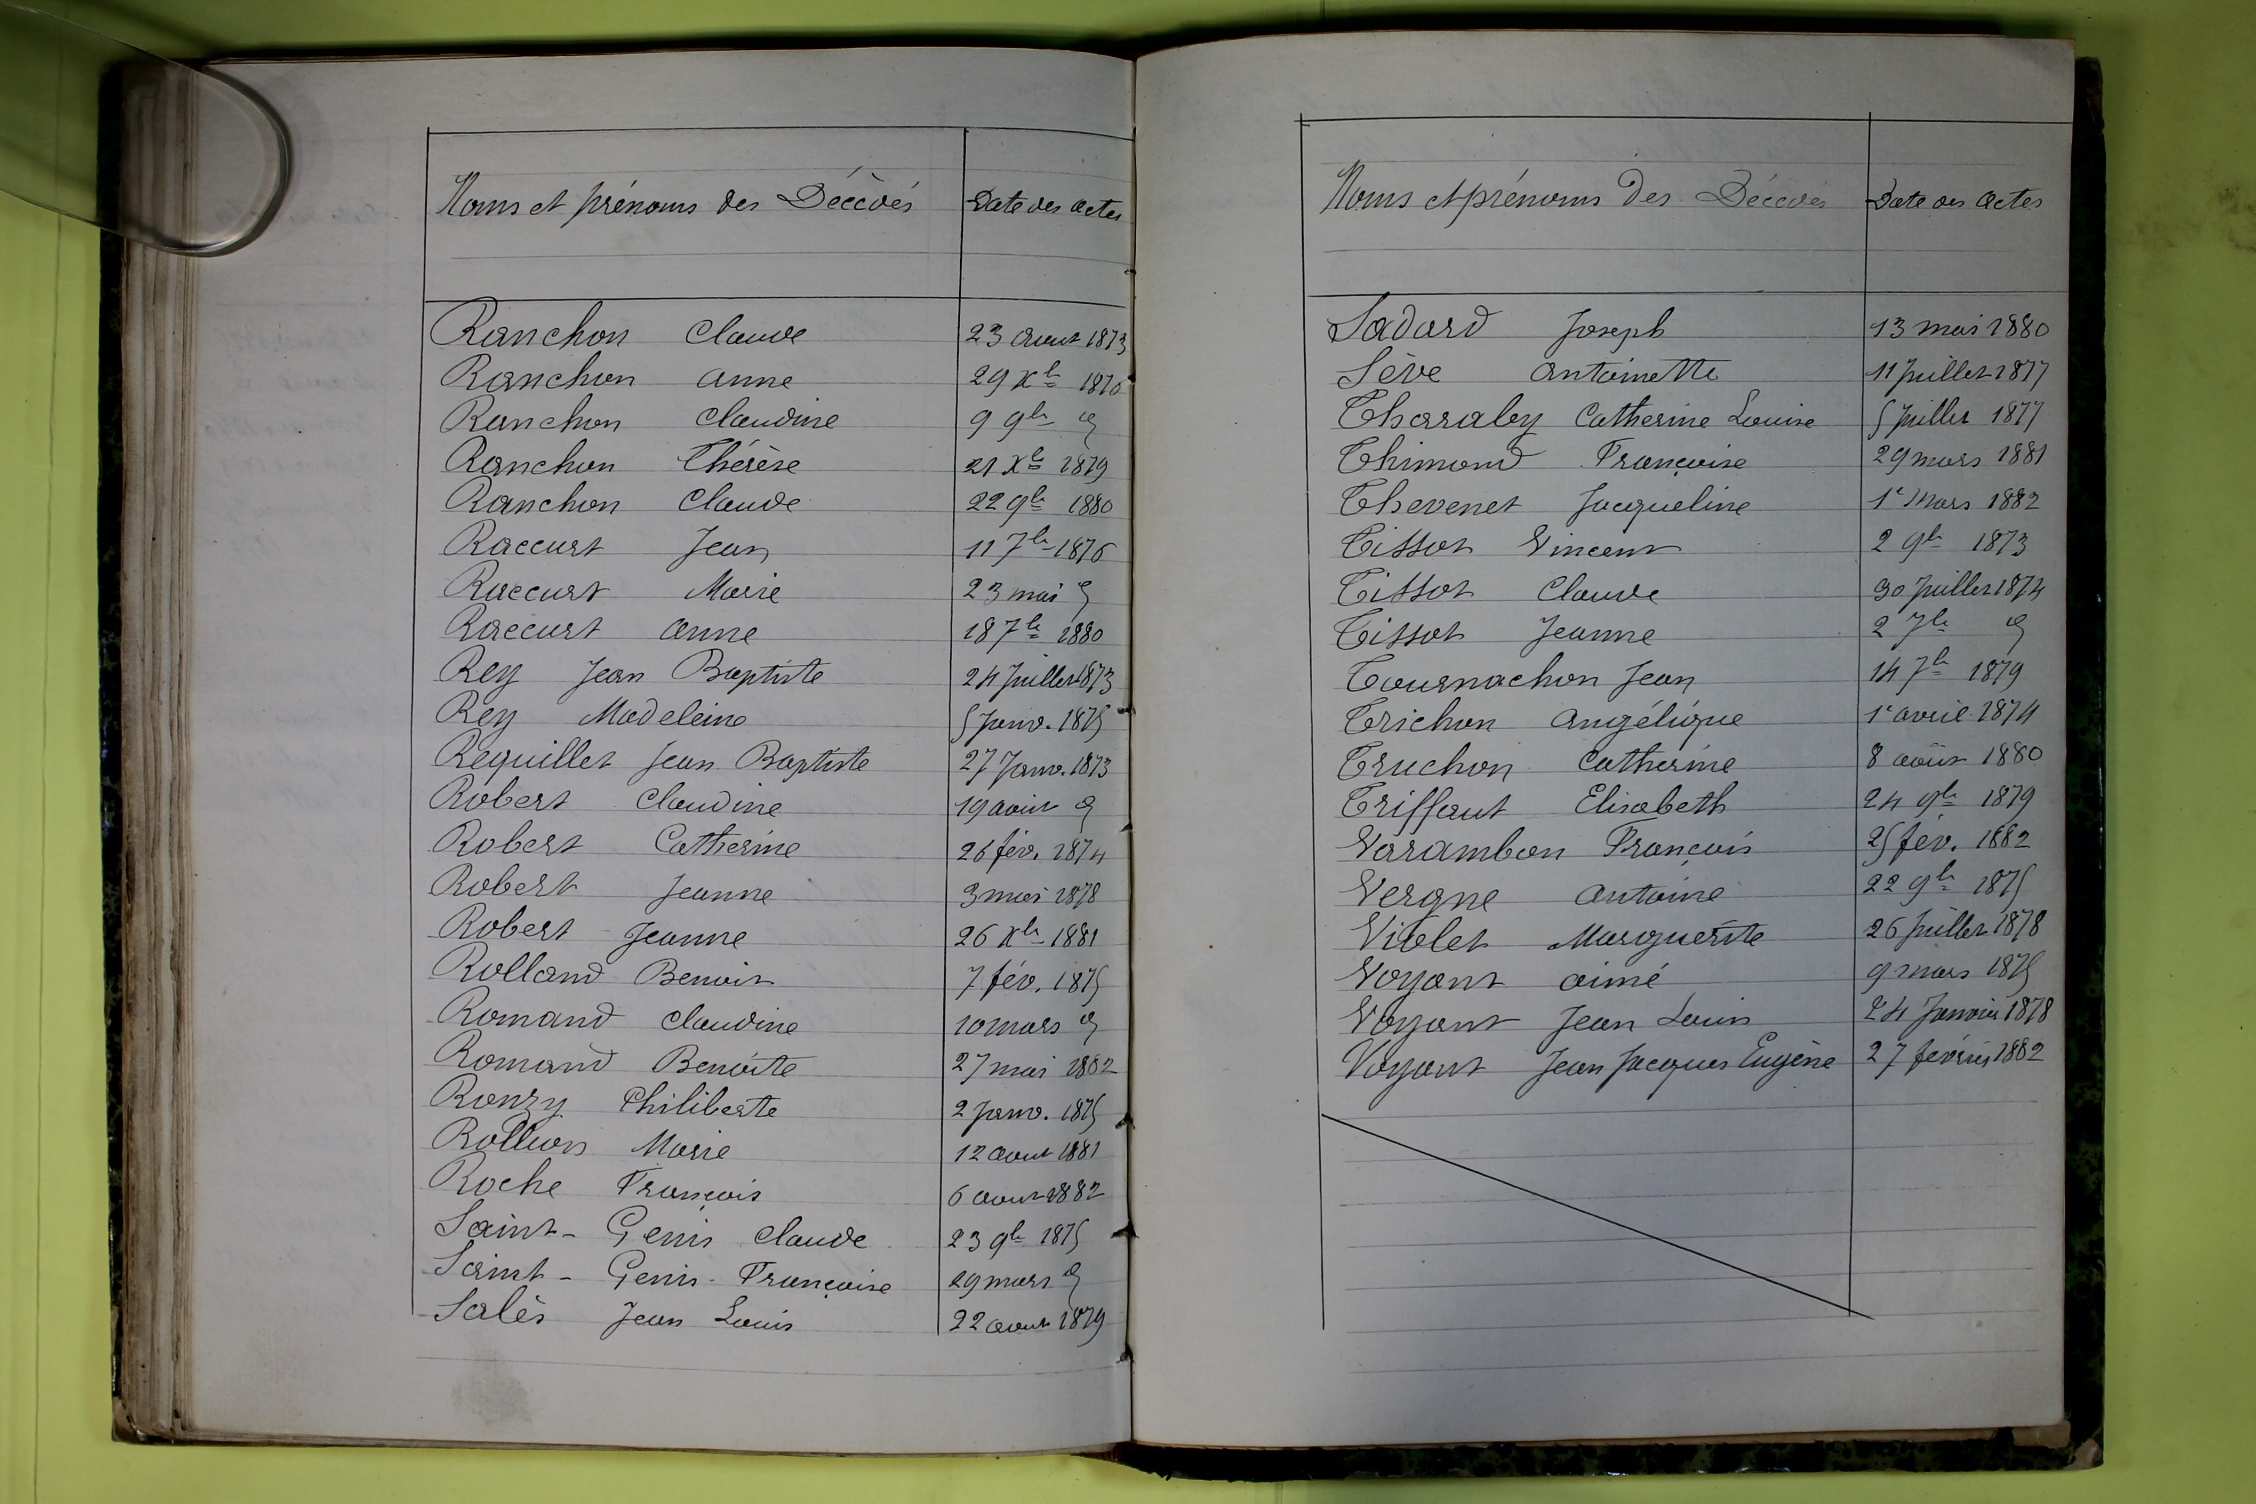 Noms et prénoms des Décédés Date des actes
Ranchon Claude 23 aout 1873
Ranchon anne 29 Xbre 1876
Ranchon Claudine 9 9bre d
Ranchon Thérèse 21 Xbre 1879
Ranchon Claude 22 9bre 1880
Raccurt Jean 11 7bre 1876
Raccurt Marie 23 mai d
Raccurt anne 18 7bre 1880
Rey Jean Baptiste 24 Juillet 1873
Rey Madeleine 5 Janv. 1875
Requillet Jean Baptiste 27 Janv. 1873
Robert Claudine 19 aout d
Robert Catherine 26 fév. 1874
Robert Jeanne 3 mai 1878
Robert Jeanne 26 Xbre 1881
Rolland Benoit 7 fév. 1875
Romand Claudine 10 mars d
Romand Benoite 27 mai 1882
Ronzy Philiberte 2 janv. 1875
Rollion Marie 12 aout 1881
Roche François 6 aout 1882
Saint-Genis Claude 23 9bre 1875
Saint-Genis Françoise 29 mars d
Salès Jean Louis 22 aout 1879
Noms et prénoms des Décédés Date des actes
Sadard Joseph 13 mai 1880
Sève Antoinette 11 Juillet 1877
Tharaby Catherine Louise 5 Juillet 1877
Thimond Françoise 29 mars 1881
Thevenet Jacqueline 1er Mars 1882
Tissot Vincent 2 9bre 1873
Tissot Claude 30 Juillet 1874
Tissot Jeanne 2 7bre d
Tournachon Jean 14 7bre 1879
Trichon Angélique 1er avril 1874
Truchon Catherine 8 août 1880
Triffaut Elisabeth 24 9bre 1879
Varambon François 25 fév. 1882
Vergne Antoine 22 9bre 1875
Violet Marguerite 26 Juillet 1878
Voyant aimé 9 mars 1875
Voyant Jean Louis 24 Janvier 1878
Voyant Jean Jacques Eugène 27 février 1882